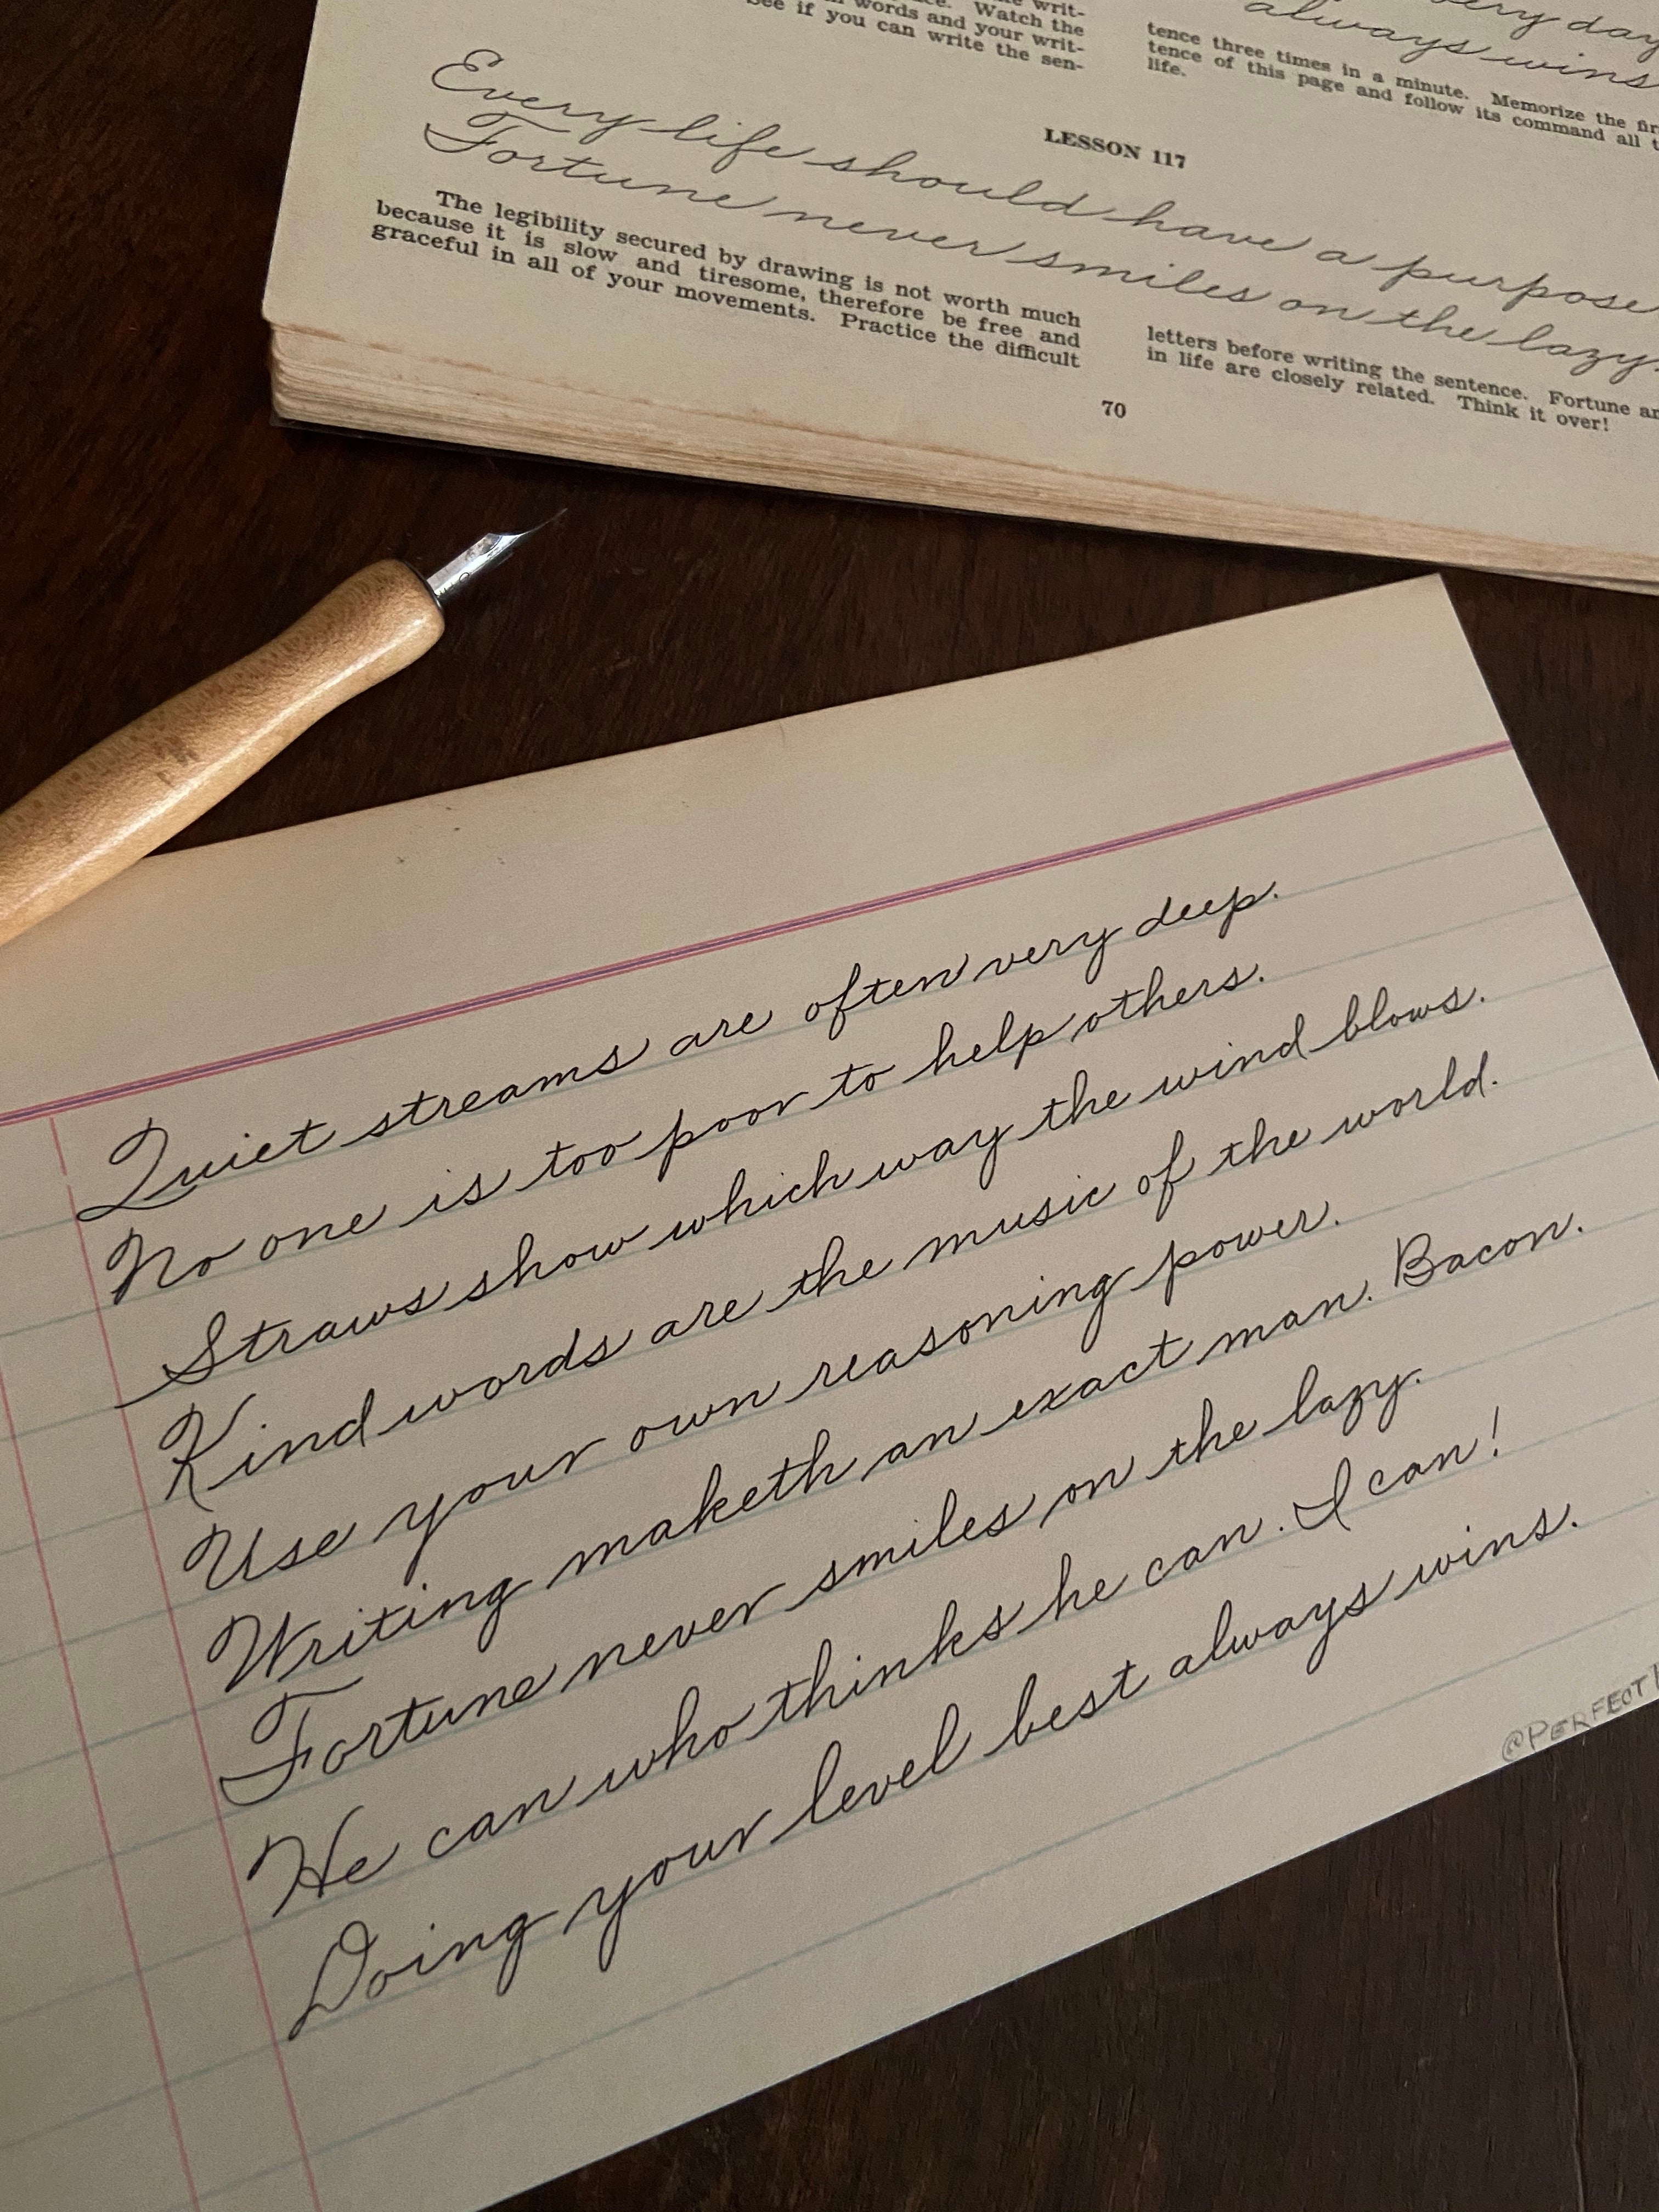 writ-
Watch the
words and your writ-
see if you can write the sen-
every day
always wins
tence three times in a minute. Memorize the
tence of this page and follow its command all
life.
LESSON 117
Every life should have a purpose
Fortune never smiles on the lazy.
The legibility secured by drawing is not worth much
because it is slow and tiresome, therefore be free and
graceful in all of your movements. Practice the difficult
letters before writing the sentence. Fortune
in life are closely related. Think it over!
70
Quiet streams are often very deep.
No one is too poor to help others.
Straws show which way the wind blows.
Kind words are the music of the world.
Use your own reasoning power.
Writing maketh an exact man. Bacon.
Fortune never smiles on the lazy.
He can who thinks he can. I can!
Doing your level best always wins.
@PERFECT